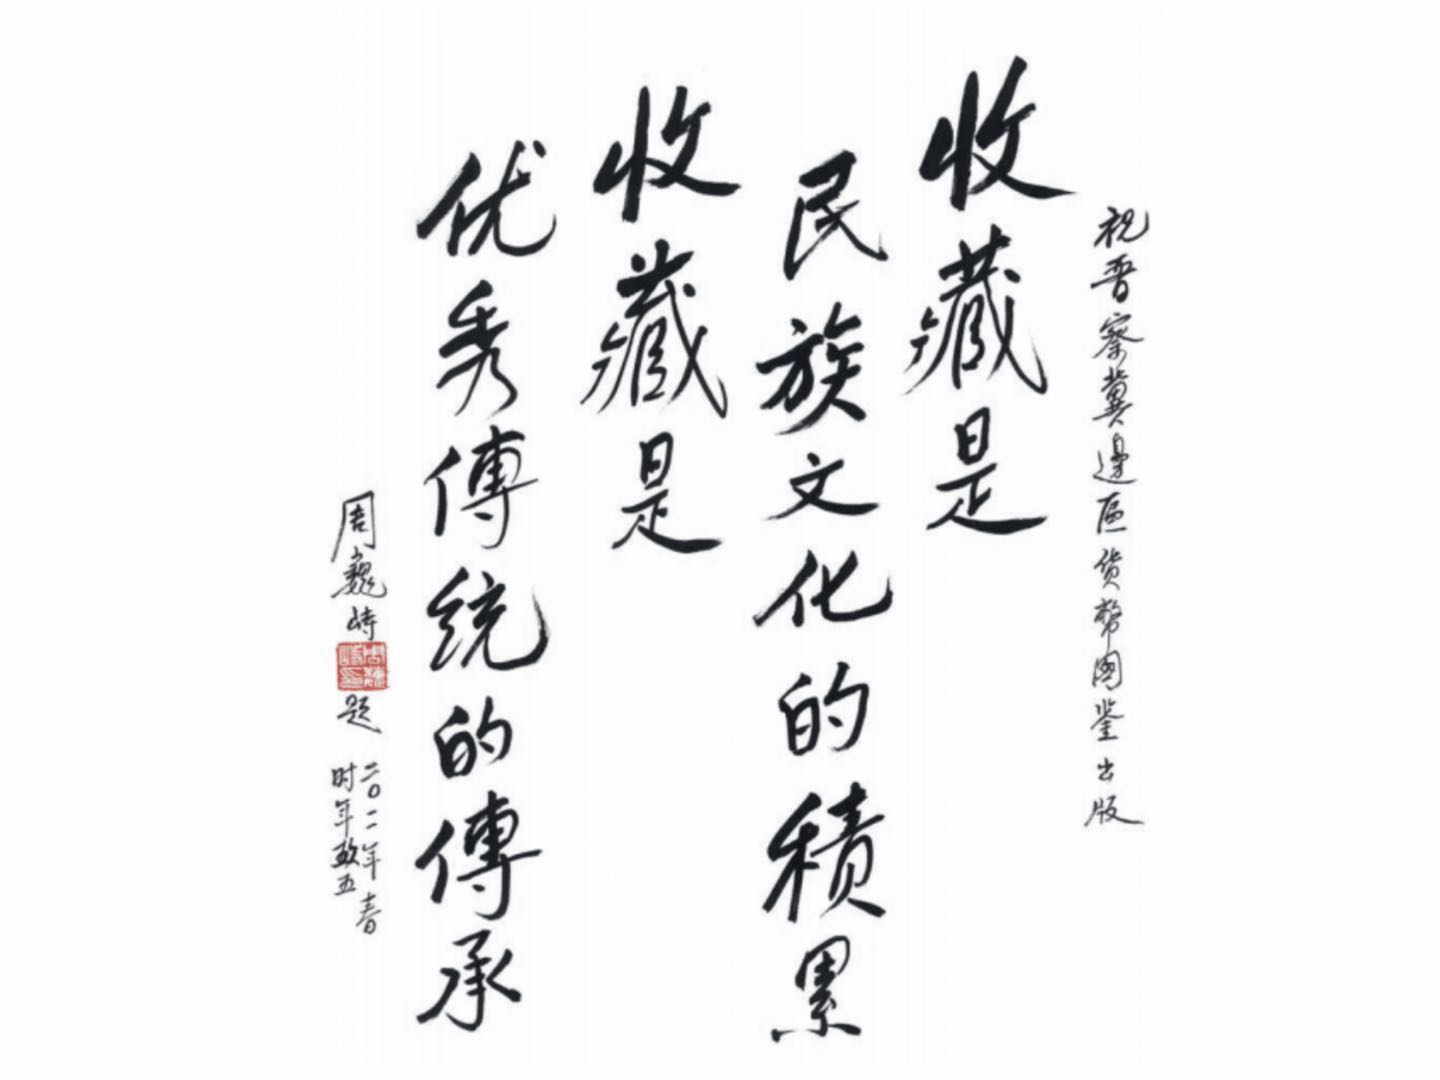 祝晋察冀邊區货幣图鉴出版
收藏是
民族文化的积累
收藏是
优秀傳统的傳承
周巍峙
题
二〇一一年春
时年 五